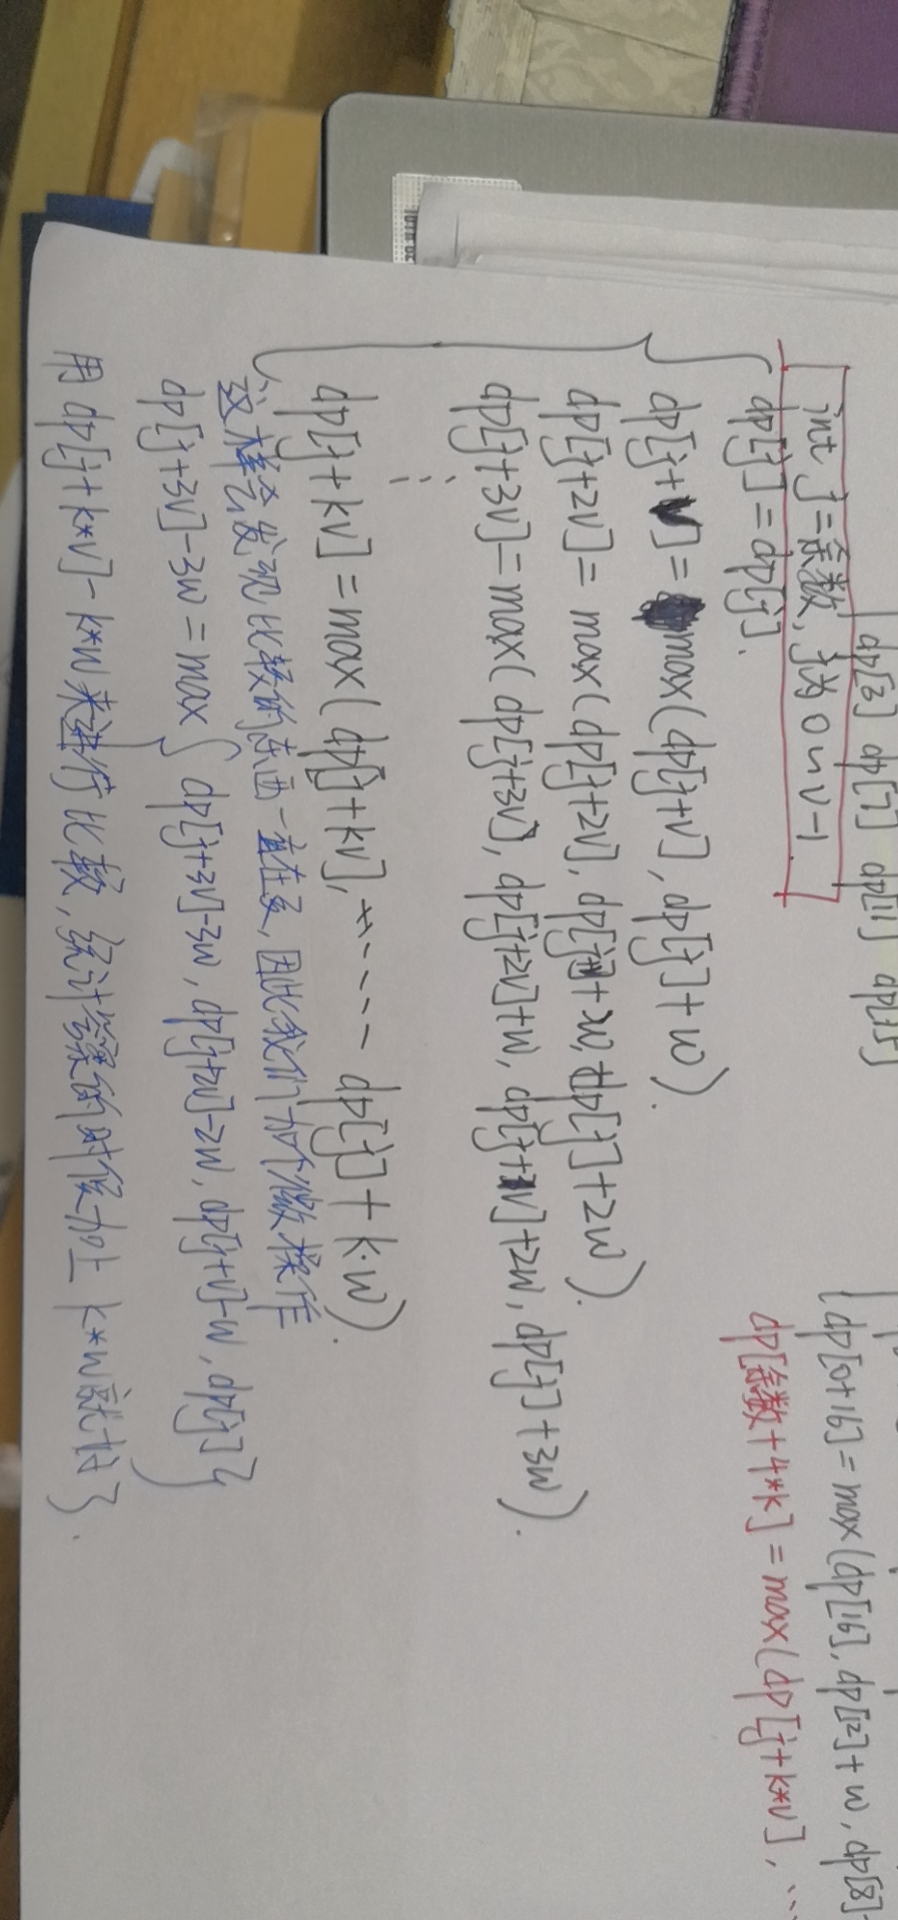 dp[3] dp[7] dp[11] dp[15]
dp[0+16] = max(dp[16], dp[12]+w, dp[8]
dp[余数+4*k] = max(dp[j+k*v], ...
int j=余数, j为0~v-1
dp[j] = dp[j].
dp[j+v] = max(dp[j+v], dp[j]+w).
dp[j+2v] = max(dp[j+2v], dp[j+v]+w, dp[j]+2w).
dp[j+3v] = max(dp[j+3v], dp[j+2v]+w, dp[j+v]+2w, dp[j]+3w).
⋮
dp[j+kv] = max(dp[j+kv], ---- dp[j]+k·w).
这样会发现比较的东西一直在变, 因此我们加个做操作
dp[j+3v]-3w = max{dp[j+3v]-3w, dp[j+2v]-2w, dp[j+v]-w, dp[j]}
用dp[j+k*v]-k*w来进行比较, 统计答案的时候加上k*w就好}.